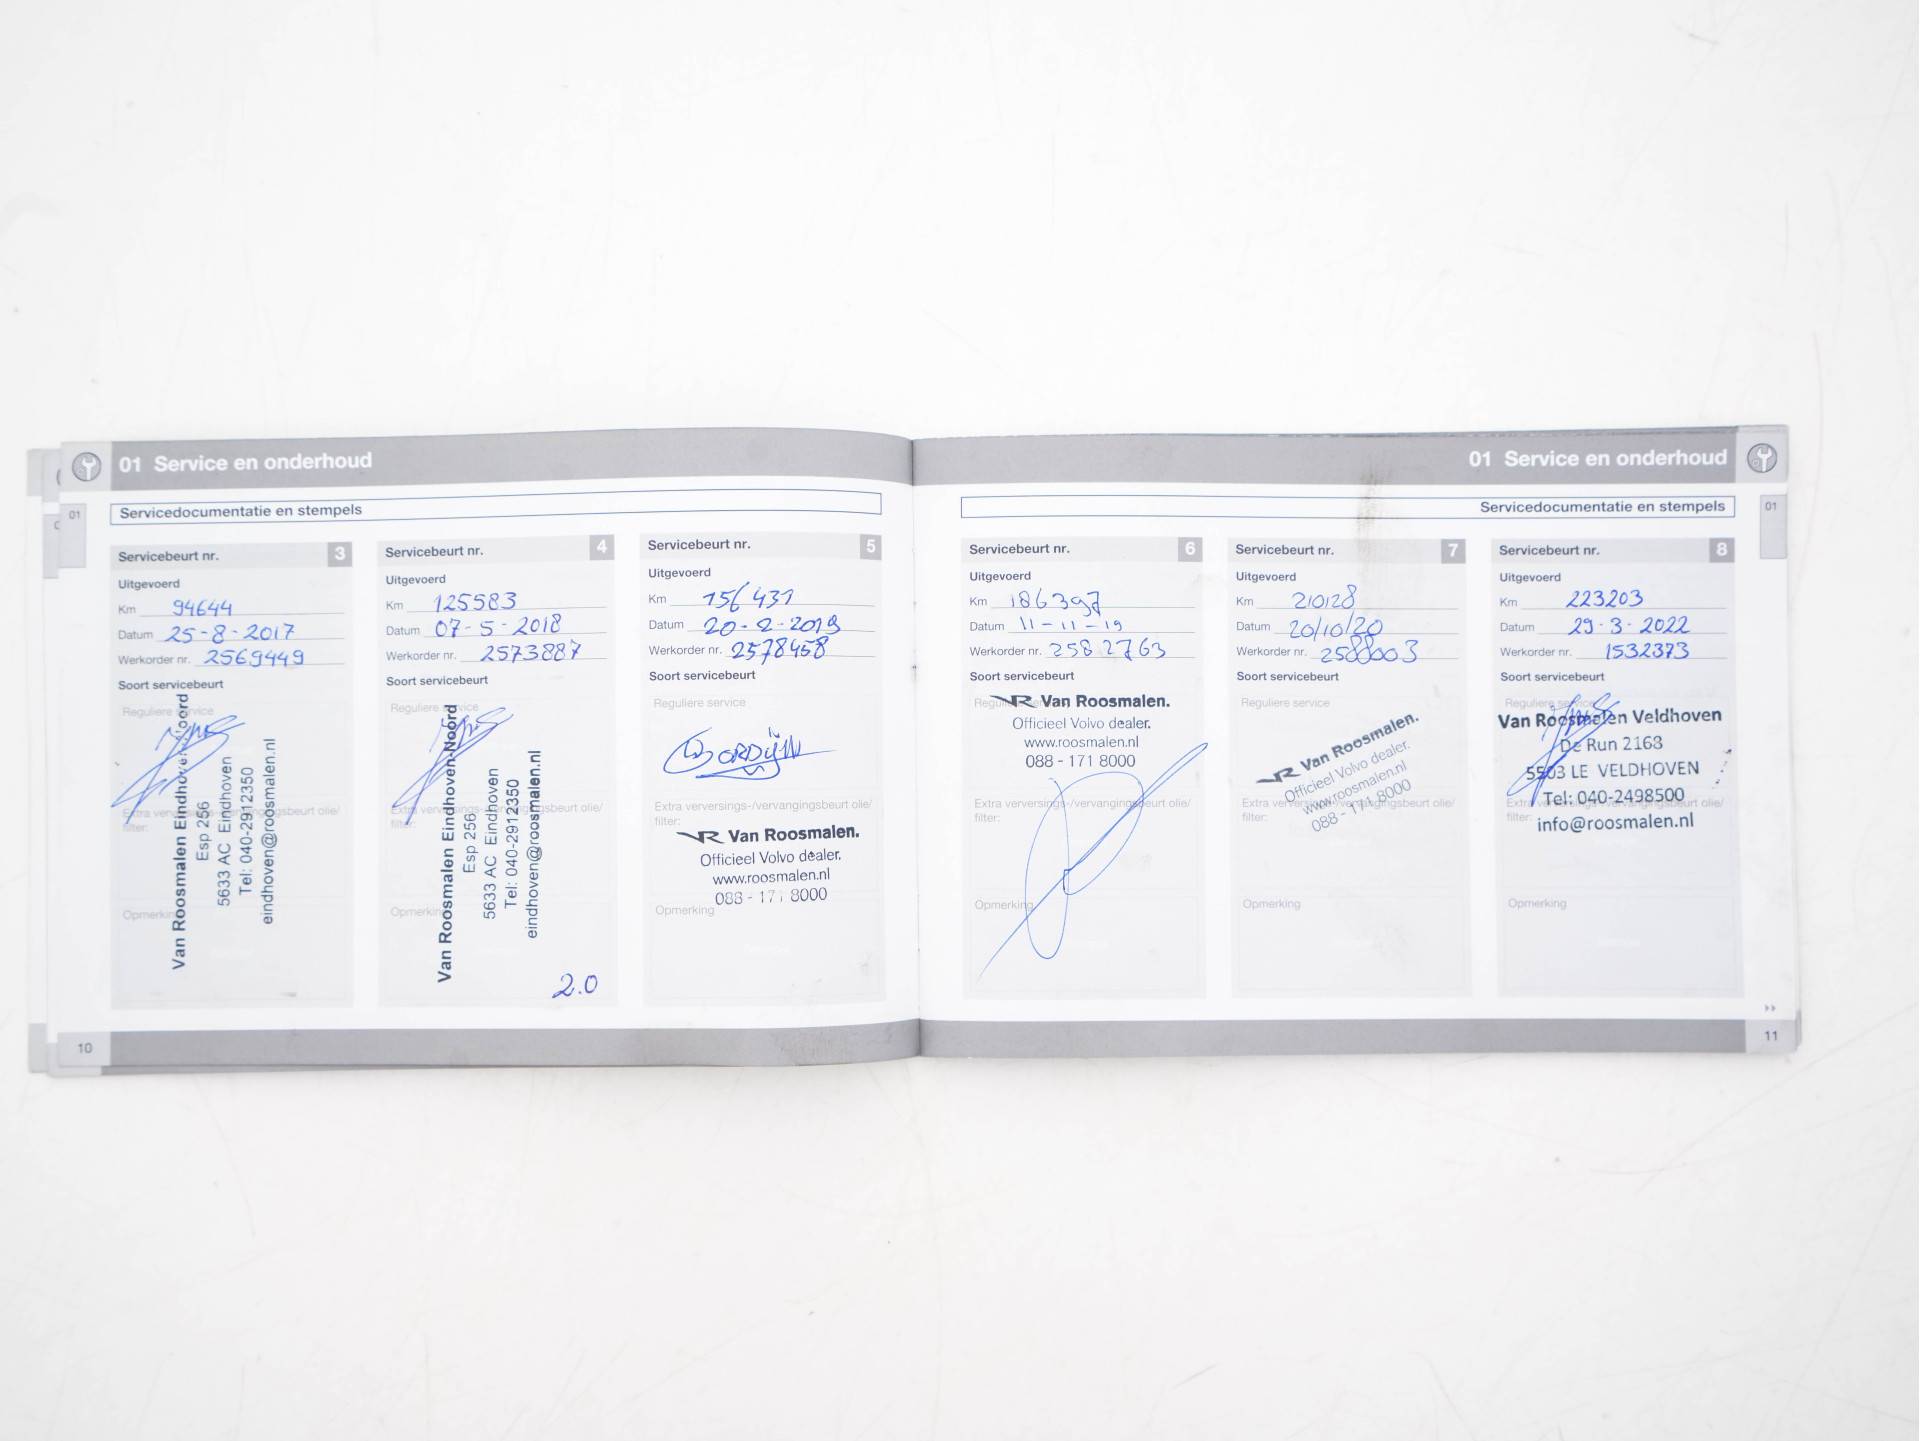 01 Service en onderhoud
Servicedocumentatie en stempels
01
Servicebeurt nr. 3
Uitgevoerd
Km 94644
Datum 25-8-2017
Werkorder nr. 2569449
Soort servicebeurt
Reguliere service
Extra verversings-/vervangingsbeurt olie/
filter:
Opmerking
Van Roosmalen Eindhoven-Noord
Esp 256
5633 AC Eindhoven
Tel: 040-2912350
eindhoven@roosmalen.nl
Servicebeurt nr. 4
Uitgevoerd
Km 125583
Datum 07-5-2018
Werkorder nr. 2573887
Soort servicebeurt
Reguliere service
Extra verversings-/vervangingsbeurt olie/
filter:
Opmerking
Van Roosmalen Eindhoven-Noord
Esp 256
5633 AC Eindhoven
Tel: 040-2912350
eindhoven@roosmalen.nl
2.0
Servicebeurt nr. 5
Uitgevoerd
Km 156431
Datum 20-2-2019
Werkorder nr. 2578458
Soort servicebeurt
Reguliere service
Extra verversings-/vervangingsbeurt olie/
filter:
Van Roosmalen.
Officieel Volvo dealer.
www.roosmalen.nl
088 - 171 8000
Opmerking
10
01 Service en onderhoud
Servicedocumentatie en stempels
01
Servicebeurt nr. 6
Uitgevoerd
Km 186397
Datum 11-11-19
Werkorder nr. 2582763
Soort servicebeurt
Reguliere service
Van Roosmalen.
Officieel Volvo dealer.
www.roosmalen.nl
088 - 171 8000
Extra verversings-/vervangingsbeurt olie/
filter:
Opmerking
Servicebeurt nr. 7
Uitgevoerd
Km 210128
Datum 20/10/20
Werkorder nr. 2588003
Soort servicebeurt
Reguliere service
Van Roosmalen.
Officieel Volvo dealer.
www.roosmalen.nl
088 - 171 8000
Extra verversings-/vervangingsbeurt olie/
filter:
Opmerking
Servicebeurt nr. 8
Uitgevoerd
Km 223203
Datum 29-3-2022
Werkorder nr. 1532373
Soort servicebeurt
Reguliere service
Van Roosmalen Veldhoven
De Run 2163
5503 LE VELDHOVEN
Tel: 040-2498500
info@roosmalen.nl
Extra verversings-/vervangingsbeurt olie/
filter:
Opmerking
11